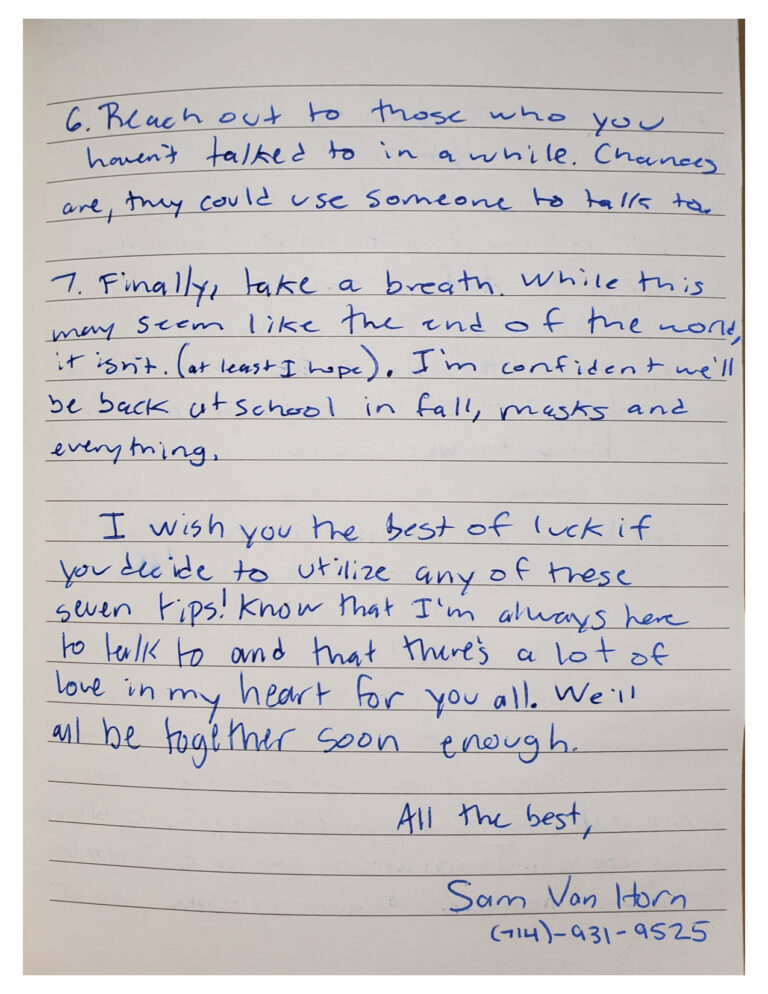 6. Reach out to those who you
haven't talked to in a while. Chances
are, they could use someone to talk to.
7. Finally, take a breath. While this
may seem like the end of the world,
it isn't. (at least I hope). I'm confident we'll
be back at school in fall, masks and
everything.
I wish you the best of luck if
you decide to utilize any of these
seven tips! Know that I'm always here
to talk to and that there's a lot of
love in my heart for you all. We'll
all be together soon enough.
All the best,
Sam Van Horn
(714)-931-9525